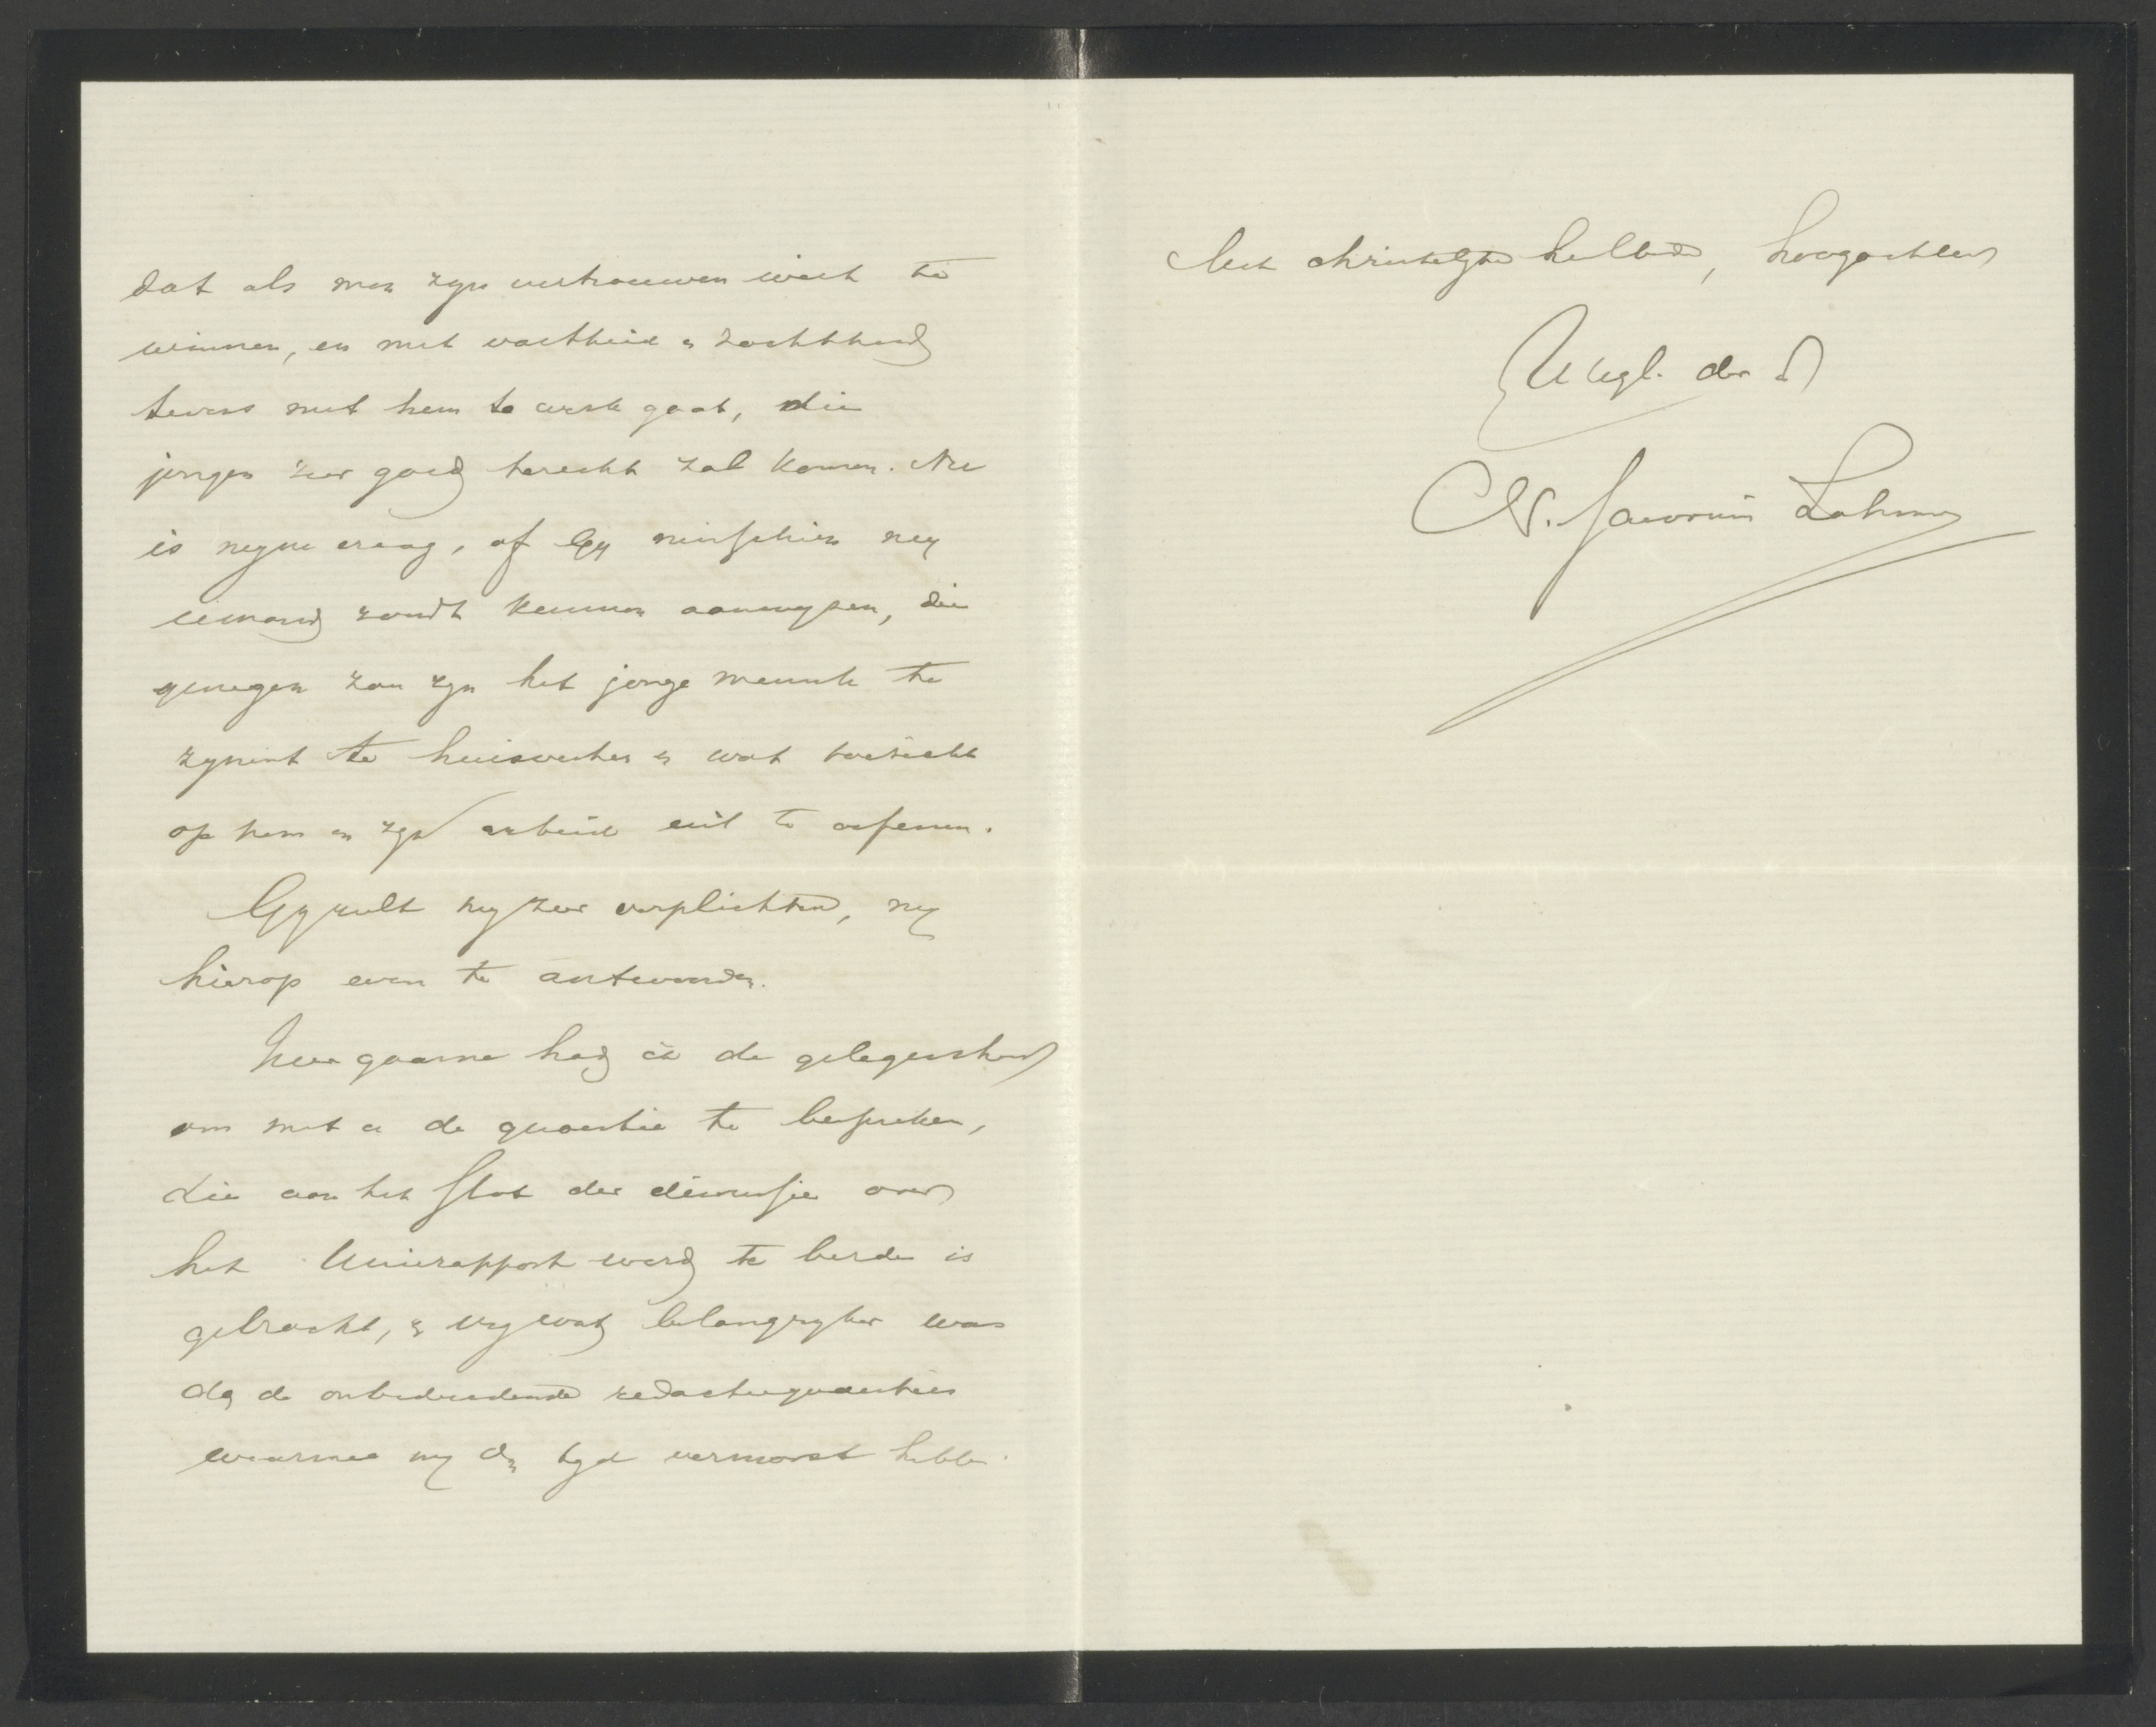 dat als men zyn vertrouwen weet te
winnen, en met vastheid & zachtheid
tevens met hem te werk gaat, die
jongen zeer goed terecht zal komen. Nu
is myne vraag, of Gy misschien my
iemand zoudt kunnen aanwyzen, die
genegen zou zyn het jonge mensch te
zynent te huisvesten & wat toezicht
op hem en zyn arbeid uit te oefenen.
Gy zult my zeer verplichten, my
hierop even te antwoorden.
Zeer gaarne had ik de gelegenheid
om met u de quaestie te bespreken,
die aan het slot der discussie over
het Unierapport werd te berde is
gebracht, & vry wat belangryker was
dan de onbeduidende redactiequaesties
waarmee wy den tyd vermorst hebben.
Met christelyke heilbede, hoogachtend
UWEgb. der d
W. Savornin Lohman